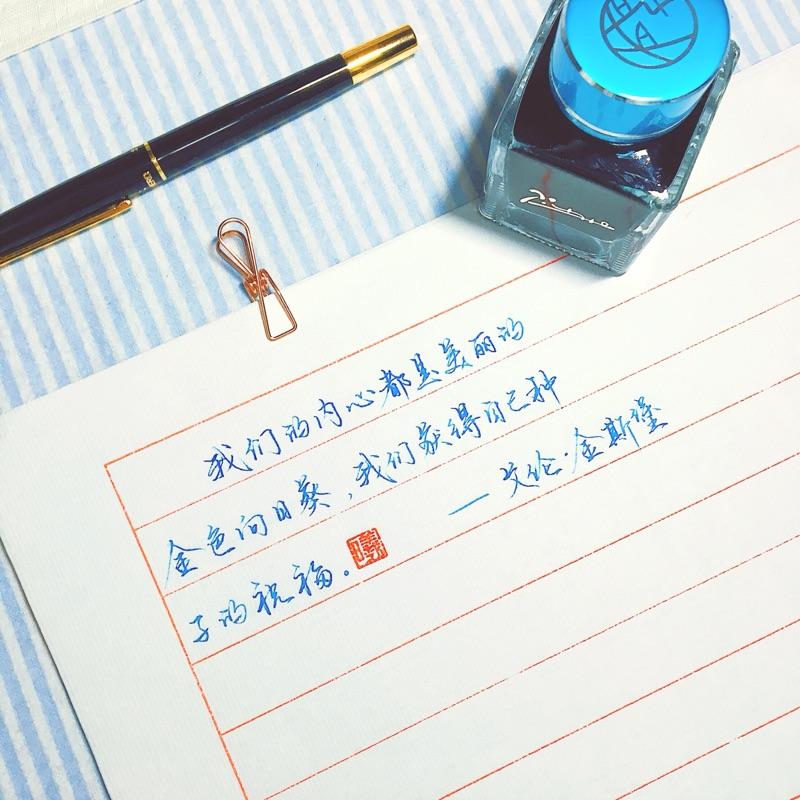 我们的内心都是美丽的
金色向日葵，我们获得自己种
子的祝福。
— 艾伦·金斯堡
Picasso